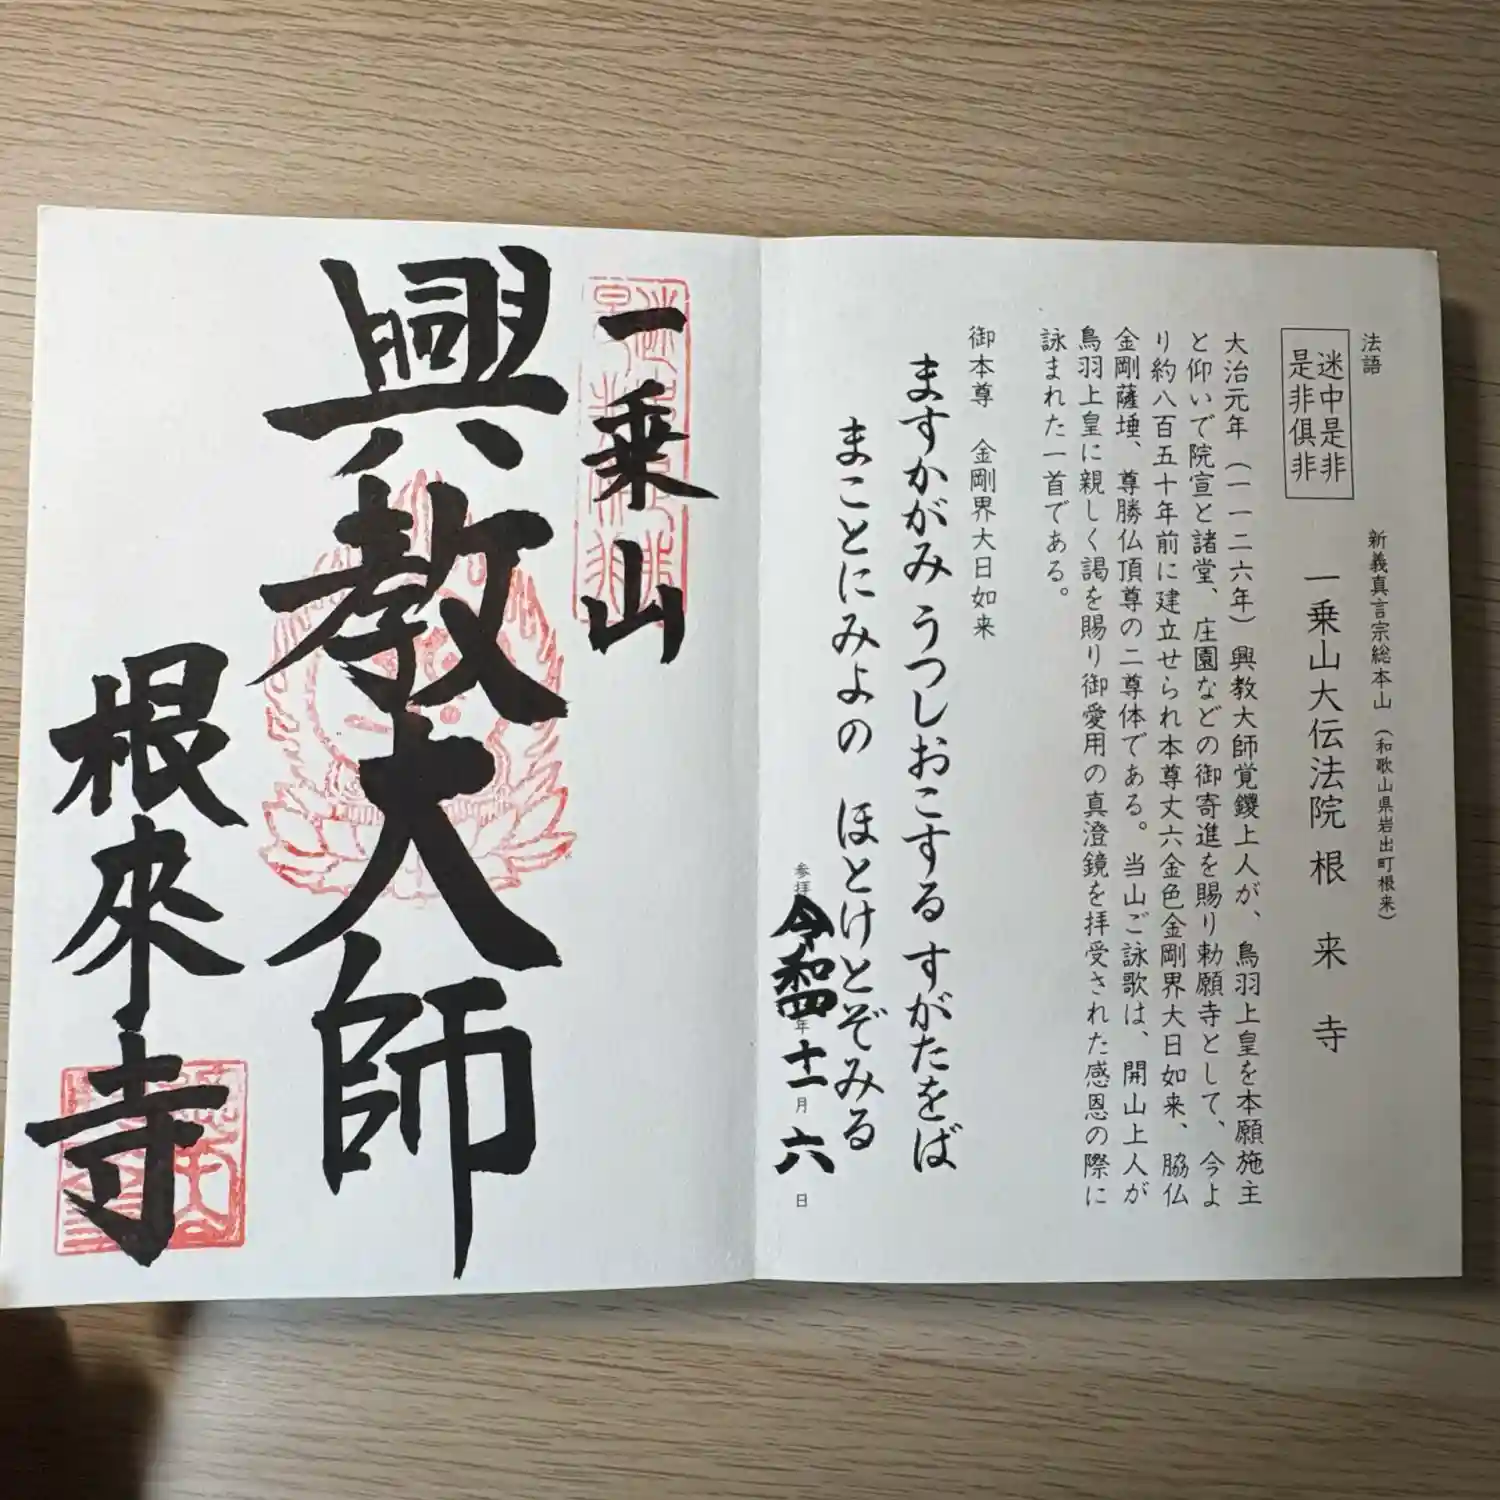 法語
迷中是非
是非俱非
新義真言宗総本山（和歌山県岩出町根来）
一乗山大伝法院根来寺
大治元年（一一二六年）興教大師覚鑁上人が、鳥羽上皇を本願施主
と仰いで院宣と諸堂、庄園などの御寄進を賜り勅願寺として、今よ
り約八百五十年前に建立せられ本尊丈六金色金剛界大日如来、脇仏
金剛薩埵、尊勝仏頂尊の二尊体である。当山ご詠歌は、開山上人が
鳥羽上皇に親しく謁を賜り御愛用の真澄鏡を拝受された感恩の際に
詠まれた一首である。
御本尊　金剛界大日如来
ますかがみ うつしおこする すがたをば
まことにみよの ほとけとぞみる
参拝 令和四年十一月六日
一乗山
興教大師
根來寺